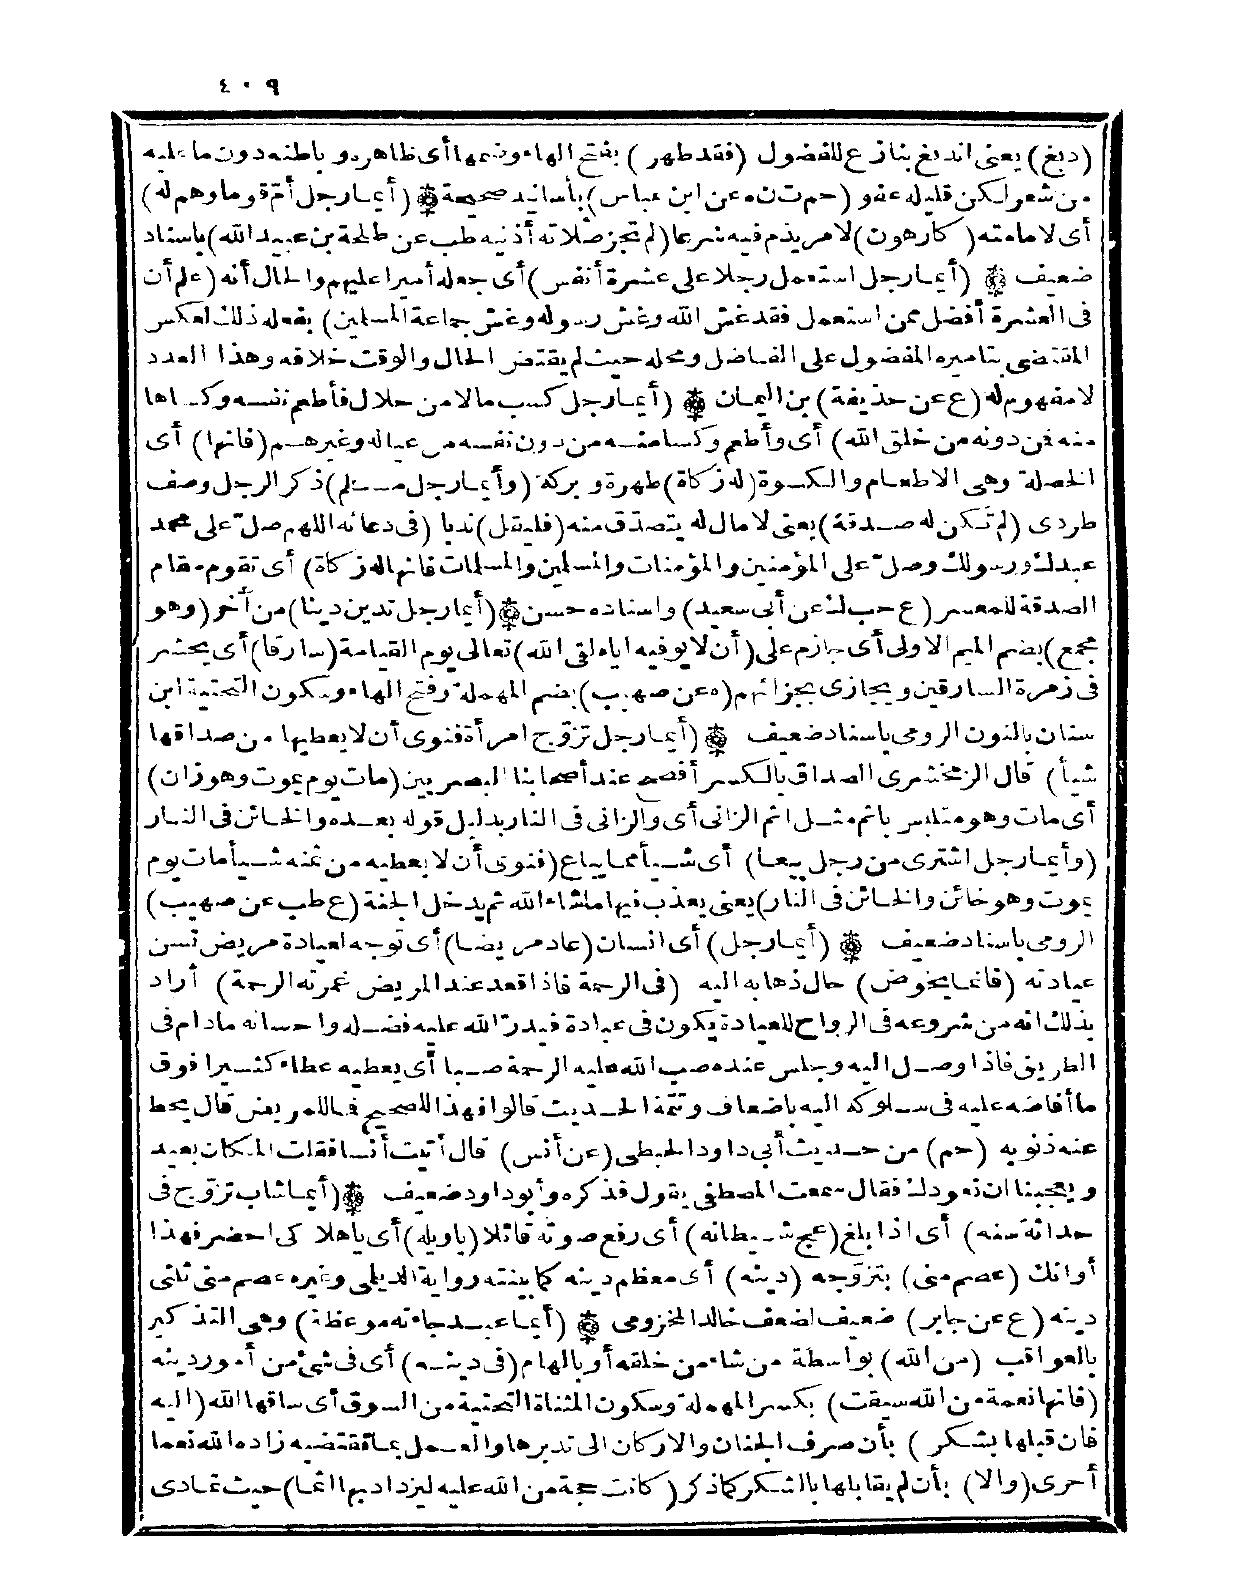 ٤٠٩
(دبغ) يعنى اندبغ بنازع للفضول (فقد طهر) بفتح الهاء وضمها أى ظاهره وباطنه دون ما عليه
من شعر لكن قليله عفو (حم ت ن ه عن ابن عباس) بأسانيد صحيحة (أيما رجل أمّ قوما وهم له)
أى لامامته (كارهون) لامر يذم فيه شرعا (لم تجز صلاته أذنيه طب عن طلحة بن عبيد الله) باسناد
ضعيف (أيما رجل استعمل رجلا على عشرة أنفس) أى جعله أميرا عليهم والحال أنه (علم أن
فى العشرة أفضل ممن استعمل فقد غش الله وغش رسوله وغش جماعة المسلمين) بفعله ذلك لعكس
المقتضى بتاميره المفضول على الفاضل ومحله حيث لم يقتض الحال والوقت خلافه وهذا العدد
لا مفهوم له (ع عن حذيفة) بن اليمان (أيما رجل كسب مالا من حلال فأطعم نفسه وكساها
منه فمن دونه من خلق الله) أى وأطعم وكسا منه من دون نفسه من عياله وغيرهم (فانها) أى
الخصلة وهى الاطعام والكسوة (له زكاة) طهرة وبركة (وأيما رجل مسلم) ذكر الرجل وصف
طردى (لم تكن له صدقة) يعنى لا مال له يتصدّق منه (فليقل) ندبا (فى دعائه اللهم صلّ على محمد
عبدك ورسولك وصلّ على المؤمنين والمؤمنات والمسلمين والمسلمات فانها له زكاة) أى تقوم مقام
الصدقة للمعسر (ع حب ك عن أبى سعيد) واسناده حسن (أيما رجل تدين دينا) من آخر (وهو
مجمع) بضم الميم الاولى أى جازم على (أن لا يوفيه اياه لقى الله) تعالى يوم القيامة (سارقا) أى يحشر
فى زمرة السارقين ويجازى بجزائهم (ه عن صهيب) بضم المهملة وفتح الهاء وسكون التحتية ابن
سنان بالنون الرومى باسناد ضعيف (أيما رجل تزوّج امرأة فنوى أن لا يعطيها من صداقها
شيأ) قال الزمخشرى الصداق بالكسر أفصح عند أصحابنا البصريين (مات يوم يموت وهو زان)
أى مات وهو متلبس باثم مثل اثم الزانى أى والزانى فى النار بدليل قوله بعده والخائن فى النار
(وأيما رجل اشترى من رجل بيعا) أى شيأ مما يباع (فنوى أن لا يعطيه من ثمنه شيأ مات يوم
يموت وهو خائن والخائن فى النار) يعنى يعذب فيها ما شاء الله ثم يدخل الجنة (ع طب عن صهيب)
الرومى باسناد ضعيف (أيما رجل) أى انسان (عاد مريضا) أى توجه لعيادة مريض تسن
عيادته (فانما يخوض) حال ذهابه اليه (فى الرحمة فاذا قعد عند المريض غمرته الرحمة) أراد
بذلك انه من شروعه فى الرواح للعيادة يكون فى عبادة فيدرّ الله عليه فضله واحسانه مادام فى
الطريق فاذا وصل اليه وجلس عنده صب الله عليه الرحمة صبا أى يعطيه عطاء كثيرا فوق
ما أفاضه عليه فى سلوكه اليه باضعاف وتتمة الحديث قالوا فهذا للصحيح فما للمريض قال يحط
عنه ذنوبه (حم) من حديث أبى داود الحبطى (عن أنس) قال أتيت أنسا فقلت المكان بعيد
ويعجبنا ان نعودك فقال سمعت المصطفى يقول فذكره وأبو داود ضعيف (أيما شاب تزوّج فى
حداثة سنه) أى اذا بلغ (عج شيطانه) أى رفع صوته قائلا (ياويله) أى ياهلاكى احضر فهذا
أوانك (عصم منى) بتزوّجه (دينه) أى معظم دينه كما بينته رواية الديلى وغيره عصم منى ثلثى
دينه (ع عن جابر) ضعيف لضعف خالد المخزومى (أيما عبد جاءته موعظة) وهى التذكير
بالعواقب (من الله) بواسطة من شاء من خلقه أو بالهام (فى دينه) أى فى شئ من أمور دينه
(فانها نعمة من الله سيقت) بكسر المهملة وسكون المثناة التحتية من السوق أى ساقها الله (اليه
فان قبلها بشكر) بأن صرف الجنان والاركان الى تدبرها والعمل بما تقتضيه زاده الله نعما
أخرى (والا) بأن لم يقابلها بالشكر كما ذكر (كانت حجة من الله عليه ليزداد بها اثما) حيث تمادى